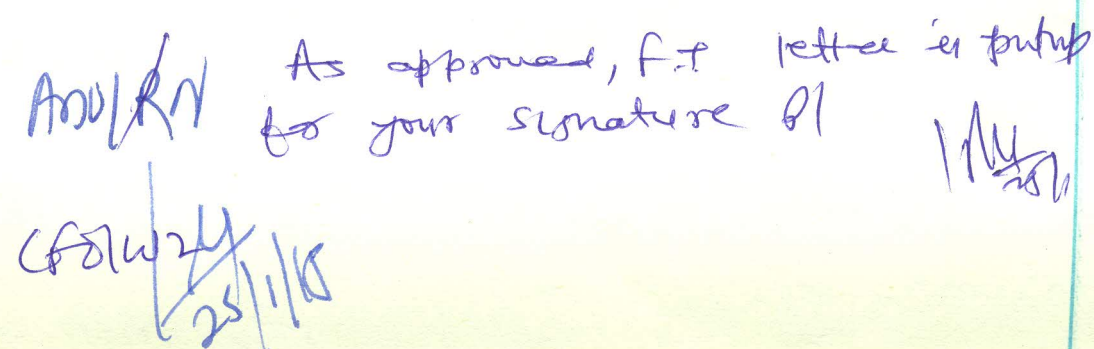 As approved, F.I letter is putup
for your signature Pl
25/1
CFO/WZ
25/1/18